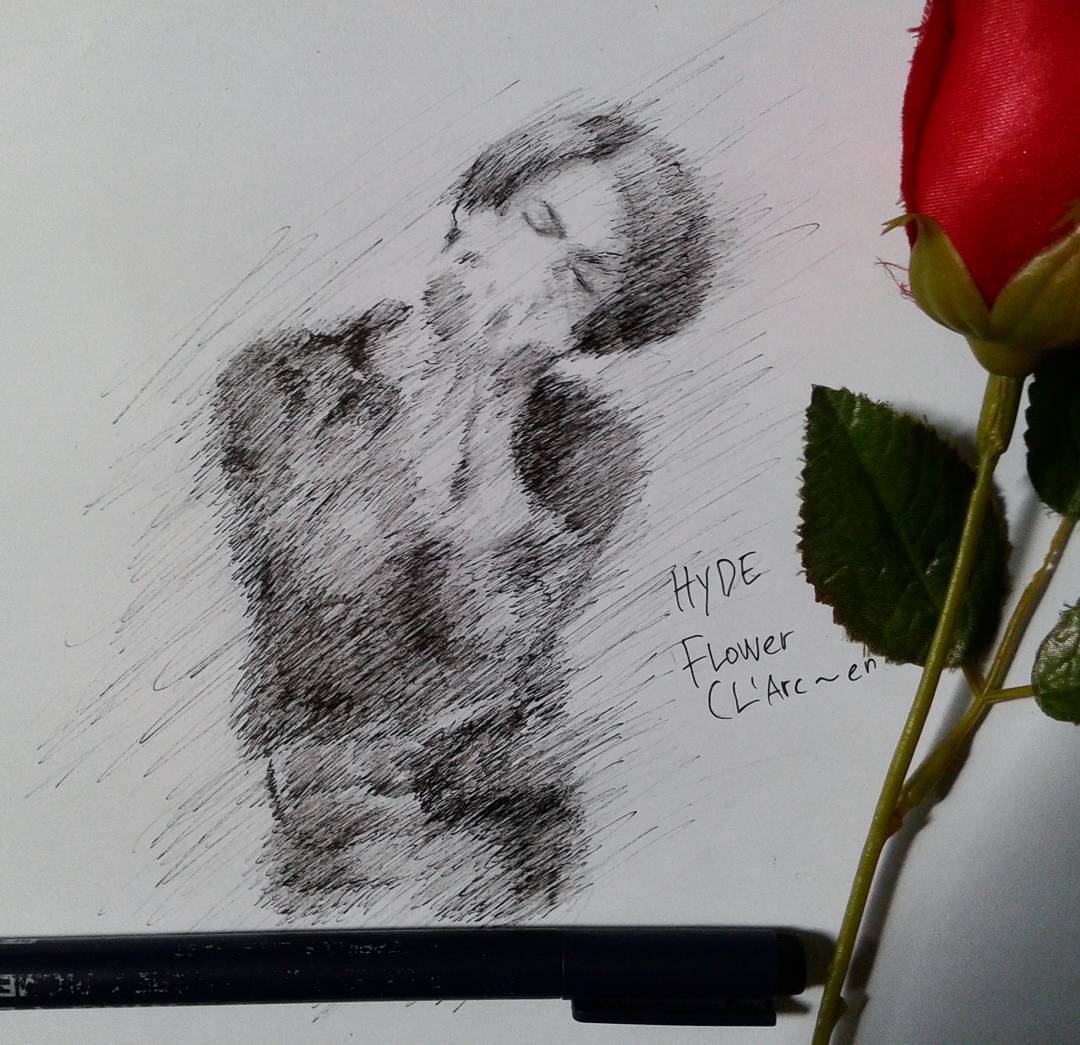 HYDE
Flower
(L'Arc~en